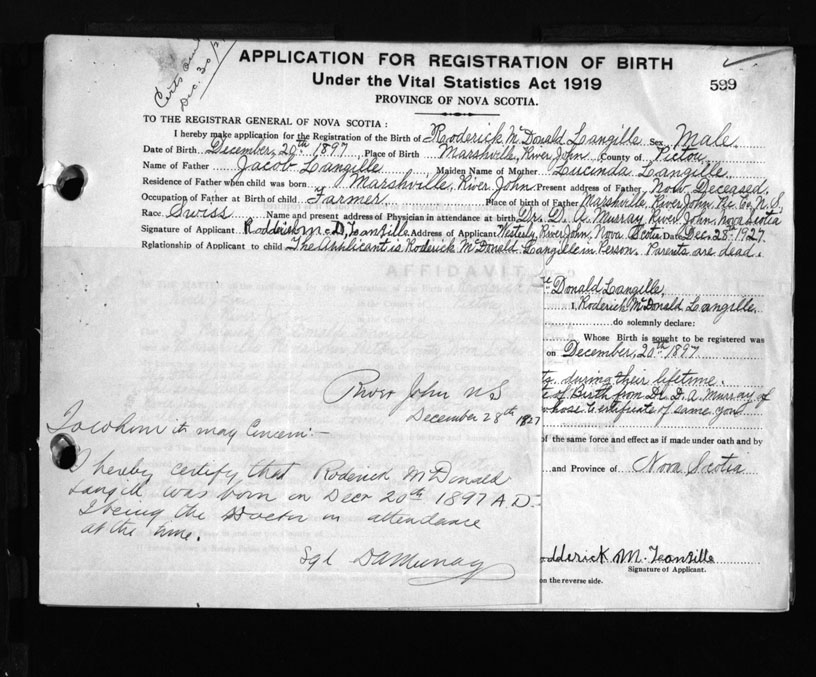 Certs
Dec. 30
APPLICATION FOR REGISTRATION OF BIRTH
Under the Vital Statistics Act 1919
599
PROVINCE OF NOVA SCOTIA.
TO THE REGISTRAR GENERAL OF NOVA SCOTIA :
I hereby make application for the Registration of the Birth of Roderick McDonald Langille Sex Male.
Date of Birth December, 20th 1897 Place of Birth Marshville, River John County of Pictou
Name of Father Jacob Langille Maiden Name of Mother Lucinda Langille.
Residence of Father when child was born Marshville, River John Present address of Father Now Deceased.
Occupation of Father at Birth of child Farmer Place of birth of Father Marshville, River John, Pic. Co. N. S.
Race. Swiss Name and present address of Physician in attendance at birth Dr. D. A. Murray, River John, Nova Scotia
Signature of Applicant Rodderick Mc D, Langille. Address of Applicant River John, Nova Scotia Date Dec. 28th 1927
Relationship of Applicant to child The Applicant is Roderick McDonald Langille in Person. Parents are dead.
AFFIDAVIT
Donald Langille,
I, Roderick McDonald Langille
do solemnly declare:
Whose Birth is sought to be registered was
on December, 20th 1897
during their lifetime.
of Birth from Dr. D. A. Murray of
whose Certificate of same
of the same force and effect as if made under oath and by
and Province of Nova Scotia
odderick M. Langille
Signature of Applicant.
on the reverse side.
River John NS
December 28th 1927
To whom it may Concern:—
I hereby certify that Roderick McDonald
Langill was born on Decr 20th 1897 A.D.
I being the Doctor in attendance
at the time.
Sgd DAMurray